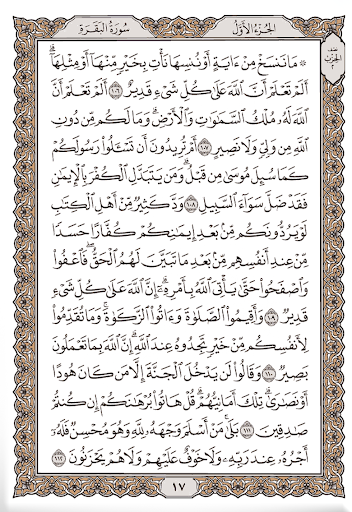 الجُزْءُ الأَوَّلُ
سُورَةُ البَقَرَةِ
نصف
الحزب
٢
۞ مَا نَنسَخْ مِنْ ءَايَةٍ أَوْ نُنسِهَا نَأْتِ بِخَيْرٍ مِّنْهَآ أَوْ مِثْلِهَآ ۗ
أَلَمْ تَعْلَمْ أَنَّ ٱللَّهَ عَلَىٰ كُلِّ شَىْءٍ قَدِيرٌ ١٠٦ أَلَمْ تَعْلَمْ أَنَّ
ٱللَّهَ لَهُۥ مُلْكُ ٱلسَّمَٰوَٰتِ وَٱلْأَرْضِ ۗ وَمَا لَكُم مِّن دُونِ
ٱللَّهِ مِن وَلِىٍّ وَلَا نَصِيرٍ ١٠٧ أَمْ تُرِيدُونَ أَن تَسْـَٔلُوا۟ رَسُولَكُمْ
كَمَا سُئِلَ مُوسَىٰ مِن قَبْلُ ۗ وَمَن يَتَبَدَّلِ ٱلْكُفْرَ بِٱلْإِيمَٰنِ
فَقَدْ ضَلَّ سَوَآءَ ٱلسَّبِيلِ ١٠٨ وَدَّ كَثِيرٌ مِّنْ أَهْلِ ٱلْكِتَٰبِ
لَوْ يَرُدُّونَكُم مِّنۢ بَعْدِ إِيمَٰنِكُمْ كُفَّارًا حَسَدًا
مِّنْ عِندِ أَنفُسِهِم مِّنۢ بَعْدِ مَا تَبَيَّنَ لَهُمُ ٱلْحَقُّ ۖ فَٱعْفُوا۟
وَٱصْفَحُوا۟ حَتَّىٰ يَأْتِىَ ٱللَّهُ بِأَمْرِهِۦٓ ۗ إِنَّ ٱللَّهَ عَلَىٰ كُلِّ شَىْءٍ
قَدِيرٌ ١٠٩ وَأَقِيمُوا۟ ٱلصَّلَوٰةَ وَءَاتُوا۟ ٱلزَّكَوٰةَ ۚ وَمَا تُقَدِّمُوا۟
لِأَنفُسِكُم مِّنْ خَيْرٍ تَجِدُوهُ عِندَ ٱللَّهِ ۗ إِنَّ ٱللَّهَ بِمَا تَعْمَلُونَ
بَصِيرٌ ١١٠ وَقَالُوا۟ لَن يَدْخُلَ ٱلْجَنَّةَ إِلَّا مَن كَانَ هُودًا
أَوْ نَصَٰرَىٰ ۗ تِلْكَ أَمَانِيُّهُمْ ۗ قُلْ هَاتُوا۟ بُرْهَٰنَكُمْ إِن كُنتُمْ
صَٰدِقِينَ ١١١ بَلَىٰ مَنْ أَسْلَمَ وَجْهَهُۥ لِلَّهِ وَهُوَ مُحْسِنٌ فَلَهُۥٓ
أَجْرُهُۥ عِندَ رَبِّهِۦ وَلَا خَوْفٌ عَلَيْهِمْ وَلَا هُمْ يَحْزَنُونَ ١١٢
١٧